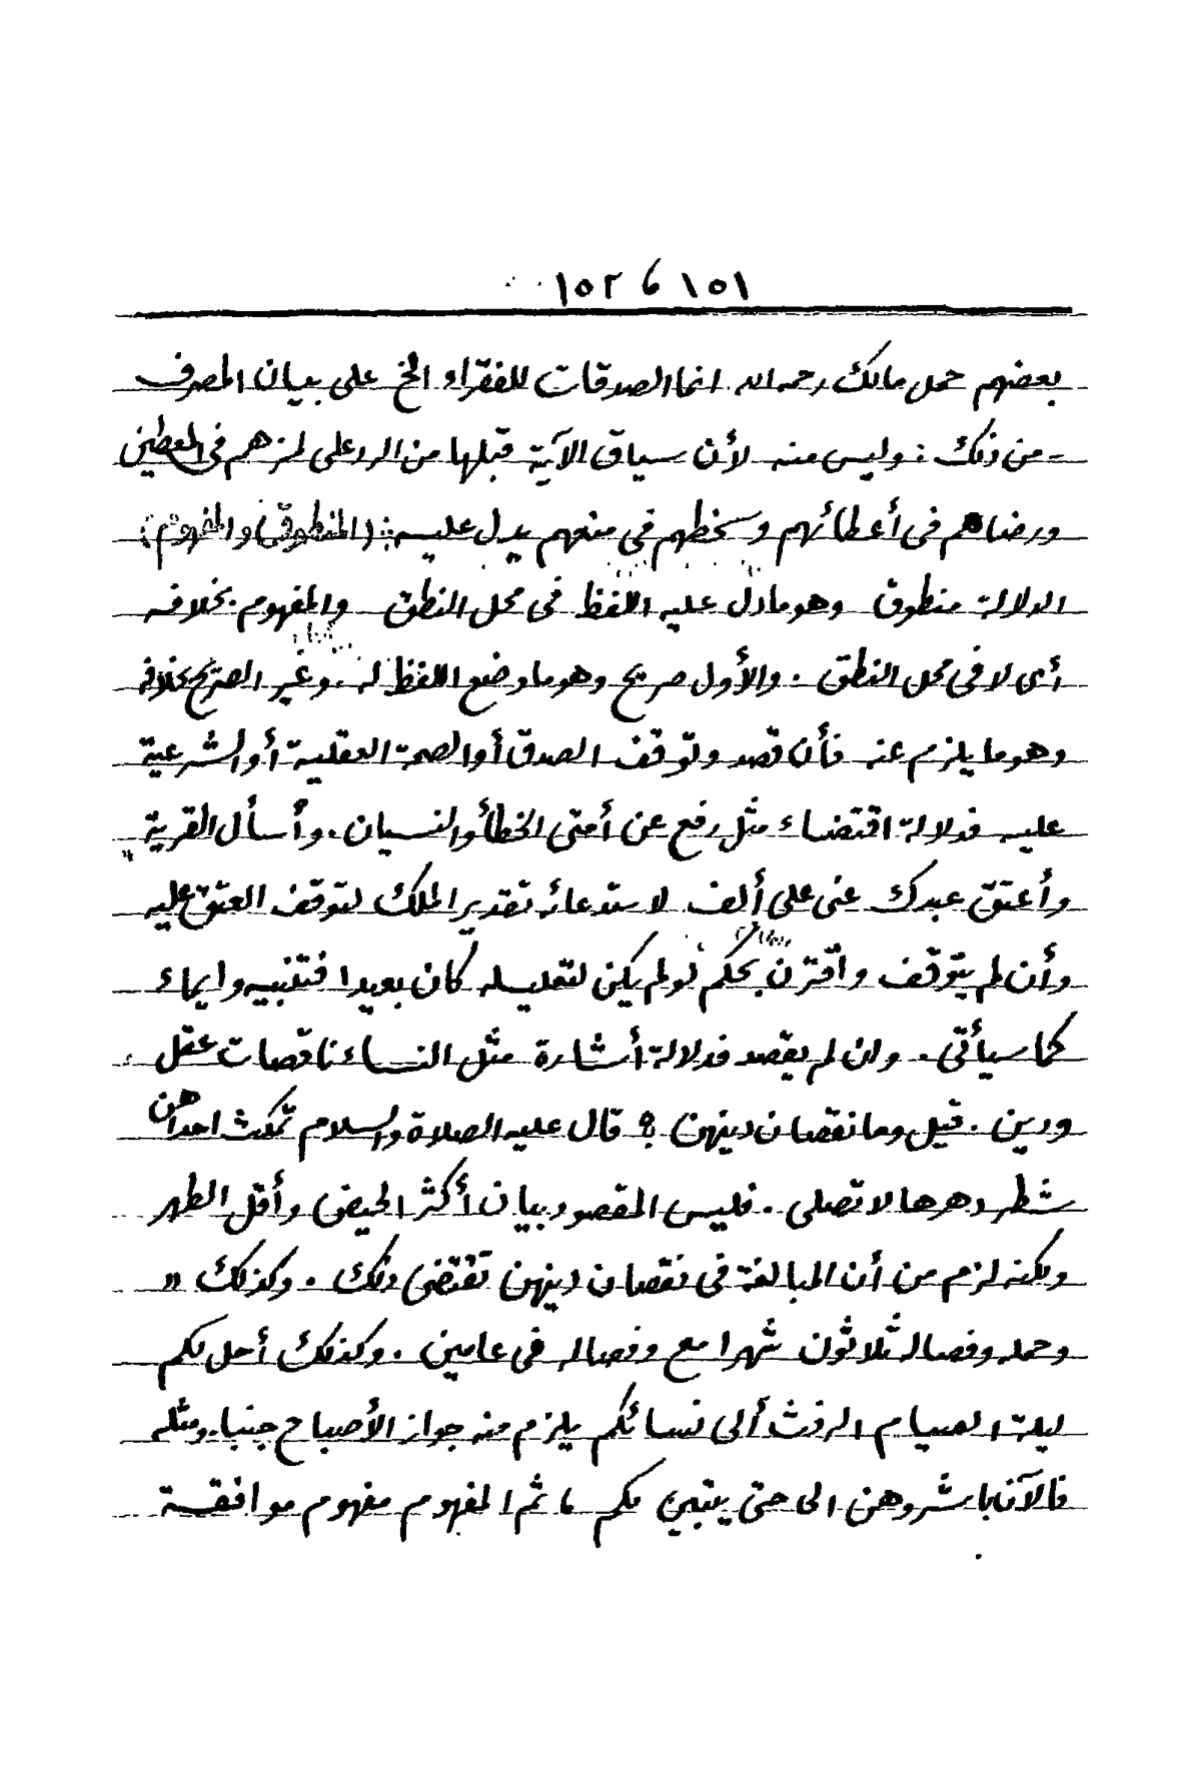 ١٥١ ، ١٥٢
بعضهم حمل مالك رحمه الله انما الصدقات للفقراء الخ على بيان المصرف
من ذلك : وليس منه لأن سياق الآية قبلها من الرد على لمزهم فى المعطين
ورضاهم فى أعطائهم وسخطهم فى منعهم يدل عليه : (المنطوق والمفهوم)
الدلالة منطوق وهو مادل عليه اللفظ فى محل النطق والمفهوم بخلافه
أى لا فى محل النطق . والأول صريح وهو ما وضع اللفظ له . وغير الصريح بخلافه
وهو ما يلزم عنه فأن قصد وتوقف الصدق أو الصحة العقلية أو الشرعية
عليه فدلالة اقتضاء مثل رفع عن أمتى الخطأ والنسيان . وأسأل القرية "
وأعتق عبدك عنى على ألف لاستدعائه تقدير الملك لتوقف العتق عليه
وأن لم يتوقف واقترن بحكم لو لم يكن لتعليله كان بعيدا فتنبيه وايماء
كما سيأتى . وان لم يقصد فدلالة أشارة مثل النساء ناقصات عقل
ودين . قيل وما نقصان دينهن ؟ قال عليه الصلاة والسلام تمكث احداهن
شطر دهرها لا تصلى . فليس المقصود بيان أكثر الحيض وأقل الطهر
ولكنه لزم من أن المبالغة فى نقصان دينهن تقتضى ذلك . وكذلك "
وحمله وفصاله ثلاثون شهرا مع وفصاله فى عامين . وكذلك أحل لكم
ليلة الصيام الرفث ألى نسائكم يلزم منه جواز الأصباح جنبا . ومثله
فالآن باشروهن الى حتى يتبين لكم ، ثم المفهوم مفهوم موافقة